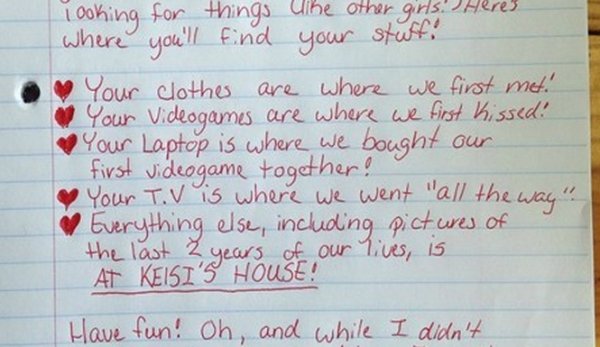 looking for things (like other girls!) Here's
where you'll find your stuff!
Your clothes are where we first met!
Your Videogames are where we first kissed!
Your Laptop is where we bought our
first videogame together!
Your T.V is where we went "all the way"!
Everything else, including pictures of
the last 2 years of our lives, is
AT KEISI'S HOUSE!
Have fun! Oh, and while I didn't